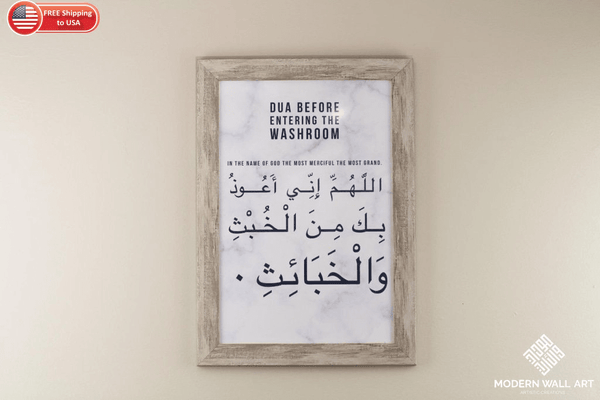 FREE Shipping
to USA
DUA BEFORE
ENTERING THE
WASHROOM
IN THE NAME OF GOD THE MOST MERCIFUL THE MOST GRAND.
اللَّهُمَّ إِنِّي أَعُوذُ
بِكَ مِنَ الْخُبْثِ
وَالْخَبَائِثِ ۰
MODERN WALL ART